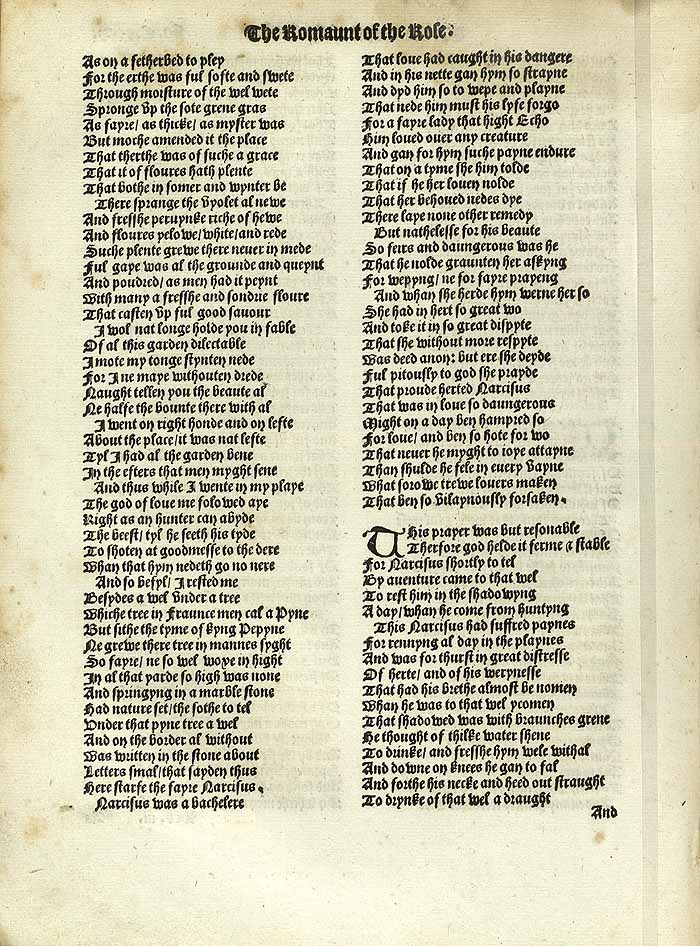 The Romaunt of the Rose.
As on a fetherbed to pley
For the erthe was ful softe and swete
Through moisture of the wel wete
Spronge vp the sote grene gras
As fayre/ as thicke/ as myster was
But moche amended it the place
That therthe was of suche a grace
That it of floures hath plente
That bothe in somer and wynter be
There sprange the vyolet al newe
And fresshe peruynke riche of hewe
And floures yelowe/ white/ and rede
Suche plente grewe there neuer in mede
Ful gaye was al the grounde and queynt
And poudred/ as men had it peynt
With many a fresshe and sondrie floure
That casten vp ful good sauour
I wol nat longe holde you in fable
Of al this garden dilectable
I mote my tonge stynten nede
For I ne maye withouten drede
Naught tellen you the beaute al
Ne halfe the bounte there with al
I went on right honde and on lefte
About the place/ it was nat lefte
Tyl I had al the garden bene
In the esters that men myght sene
And thus while I wente in my playe
The god of loue me folowed aye
Right as an hunter can abyde
The beest/ tyl he seeth his tyde
To shoten at goodmesse to the dere
Whan that hym nedeth go no nere
And so befyl/ I rested me
Besydes a wel vnder a tree
Whiche tree in Fraunce men cal a Pyne
But sithe the tyme of kyng Pepyne
Ne grewe there tree in mannes syght
So fayre/ ne so wel woxe in hight
In al that yarde so high was none
And springyng in a marble stone
Had nature set/ the sothe to tel
Vnder that pyne tree a wel
And on the border al without
Was written in the stone about
Letters smal/ that sayden thus
Here starfe the fayre Narcisus.
Narcisus was a bachelere
That loue had caught in his dangere
And in his nette gan hym so strayne
And dyd him so to wepe and playne
That nede him must his lyfe forgo
For a fayre lady that hight Echo
Him loued ouer any creature
And gan for hym suche payne endure
That on a tyme she him tolde
That if he her louen nolde
That her behoued nedes dye
There laye none other remedy
But nathelesse for his beaute
So feirs and daungerous was he
That he nolde graunten her askyng
For wepyng/ ne for fayre prayeng
And whan she herde hym werne her so
She had in hert so great wo
And toke it in so great dispyte
That she without more respyte
Was deed anon: but ere she deyde
Ful pitously to god she prayde
That proude herted Narcisus
That was in loue so daungerous
Might on a day ben hampred so
For loue/ and ben so hote for wo
That neuer he myght to ioye attayne
Than shulde he fele in euery vayne
What sorowe trewe louers maken
That ben so vilaynously forsaken.
This prayer was but resonable
Therfore god helde it ferme & stable
For Narcisus shortly to tel
By auenture came to that wel
To rest him in the shadowyng
A day/ whan he come from huntyng
This Narcisus had suffred paynes
For rennyng al day in the playnes
And was for thurst in great distresse
Of herte/ and of his werynesse
That had his brethe almost be nomen
Whan he was to that wel ycomen
That shadowed was with braunches grene
He thought of thilke water shene
To drinke/ and fresshe hym wele withal
And downe on knees he gan to fal
And forthe his necke and heed out straught
To drynke of that wel a draught
And